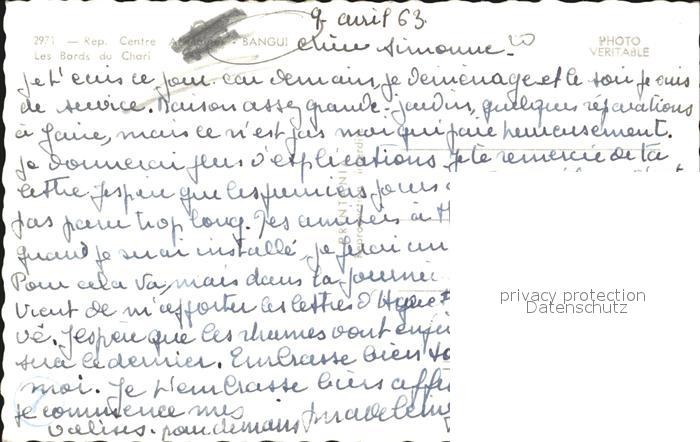 9 avril 63.
2971 - Rep. Centre - BANGUI
Les Bords du Chari
PHOTO
VERITABLE
Chère Simonne -
Je t'écris ce jour car demain, je déménage et le soir je suis
de service. Maison assez grande - jardin, quelques réparations
à faire, mais ce n'est pas moi qui paie heureusement.
Je donnerai plus d'explications. Je te remercie de ta
lettre. J'espère que les premiers jours
pas paru trop long. Mes amitiés à
quand je serai installé, je ferai un
Pour cela va, mais dans la journée
vient de m'apporter les lettres d'
vé. J'espère que les rhumes vont
sera le dernier. Embrasse bien
moi. Je t'embrasse bien
je commence mes
valises pour demain
privacy protection
Datenschutz